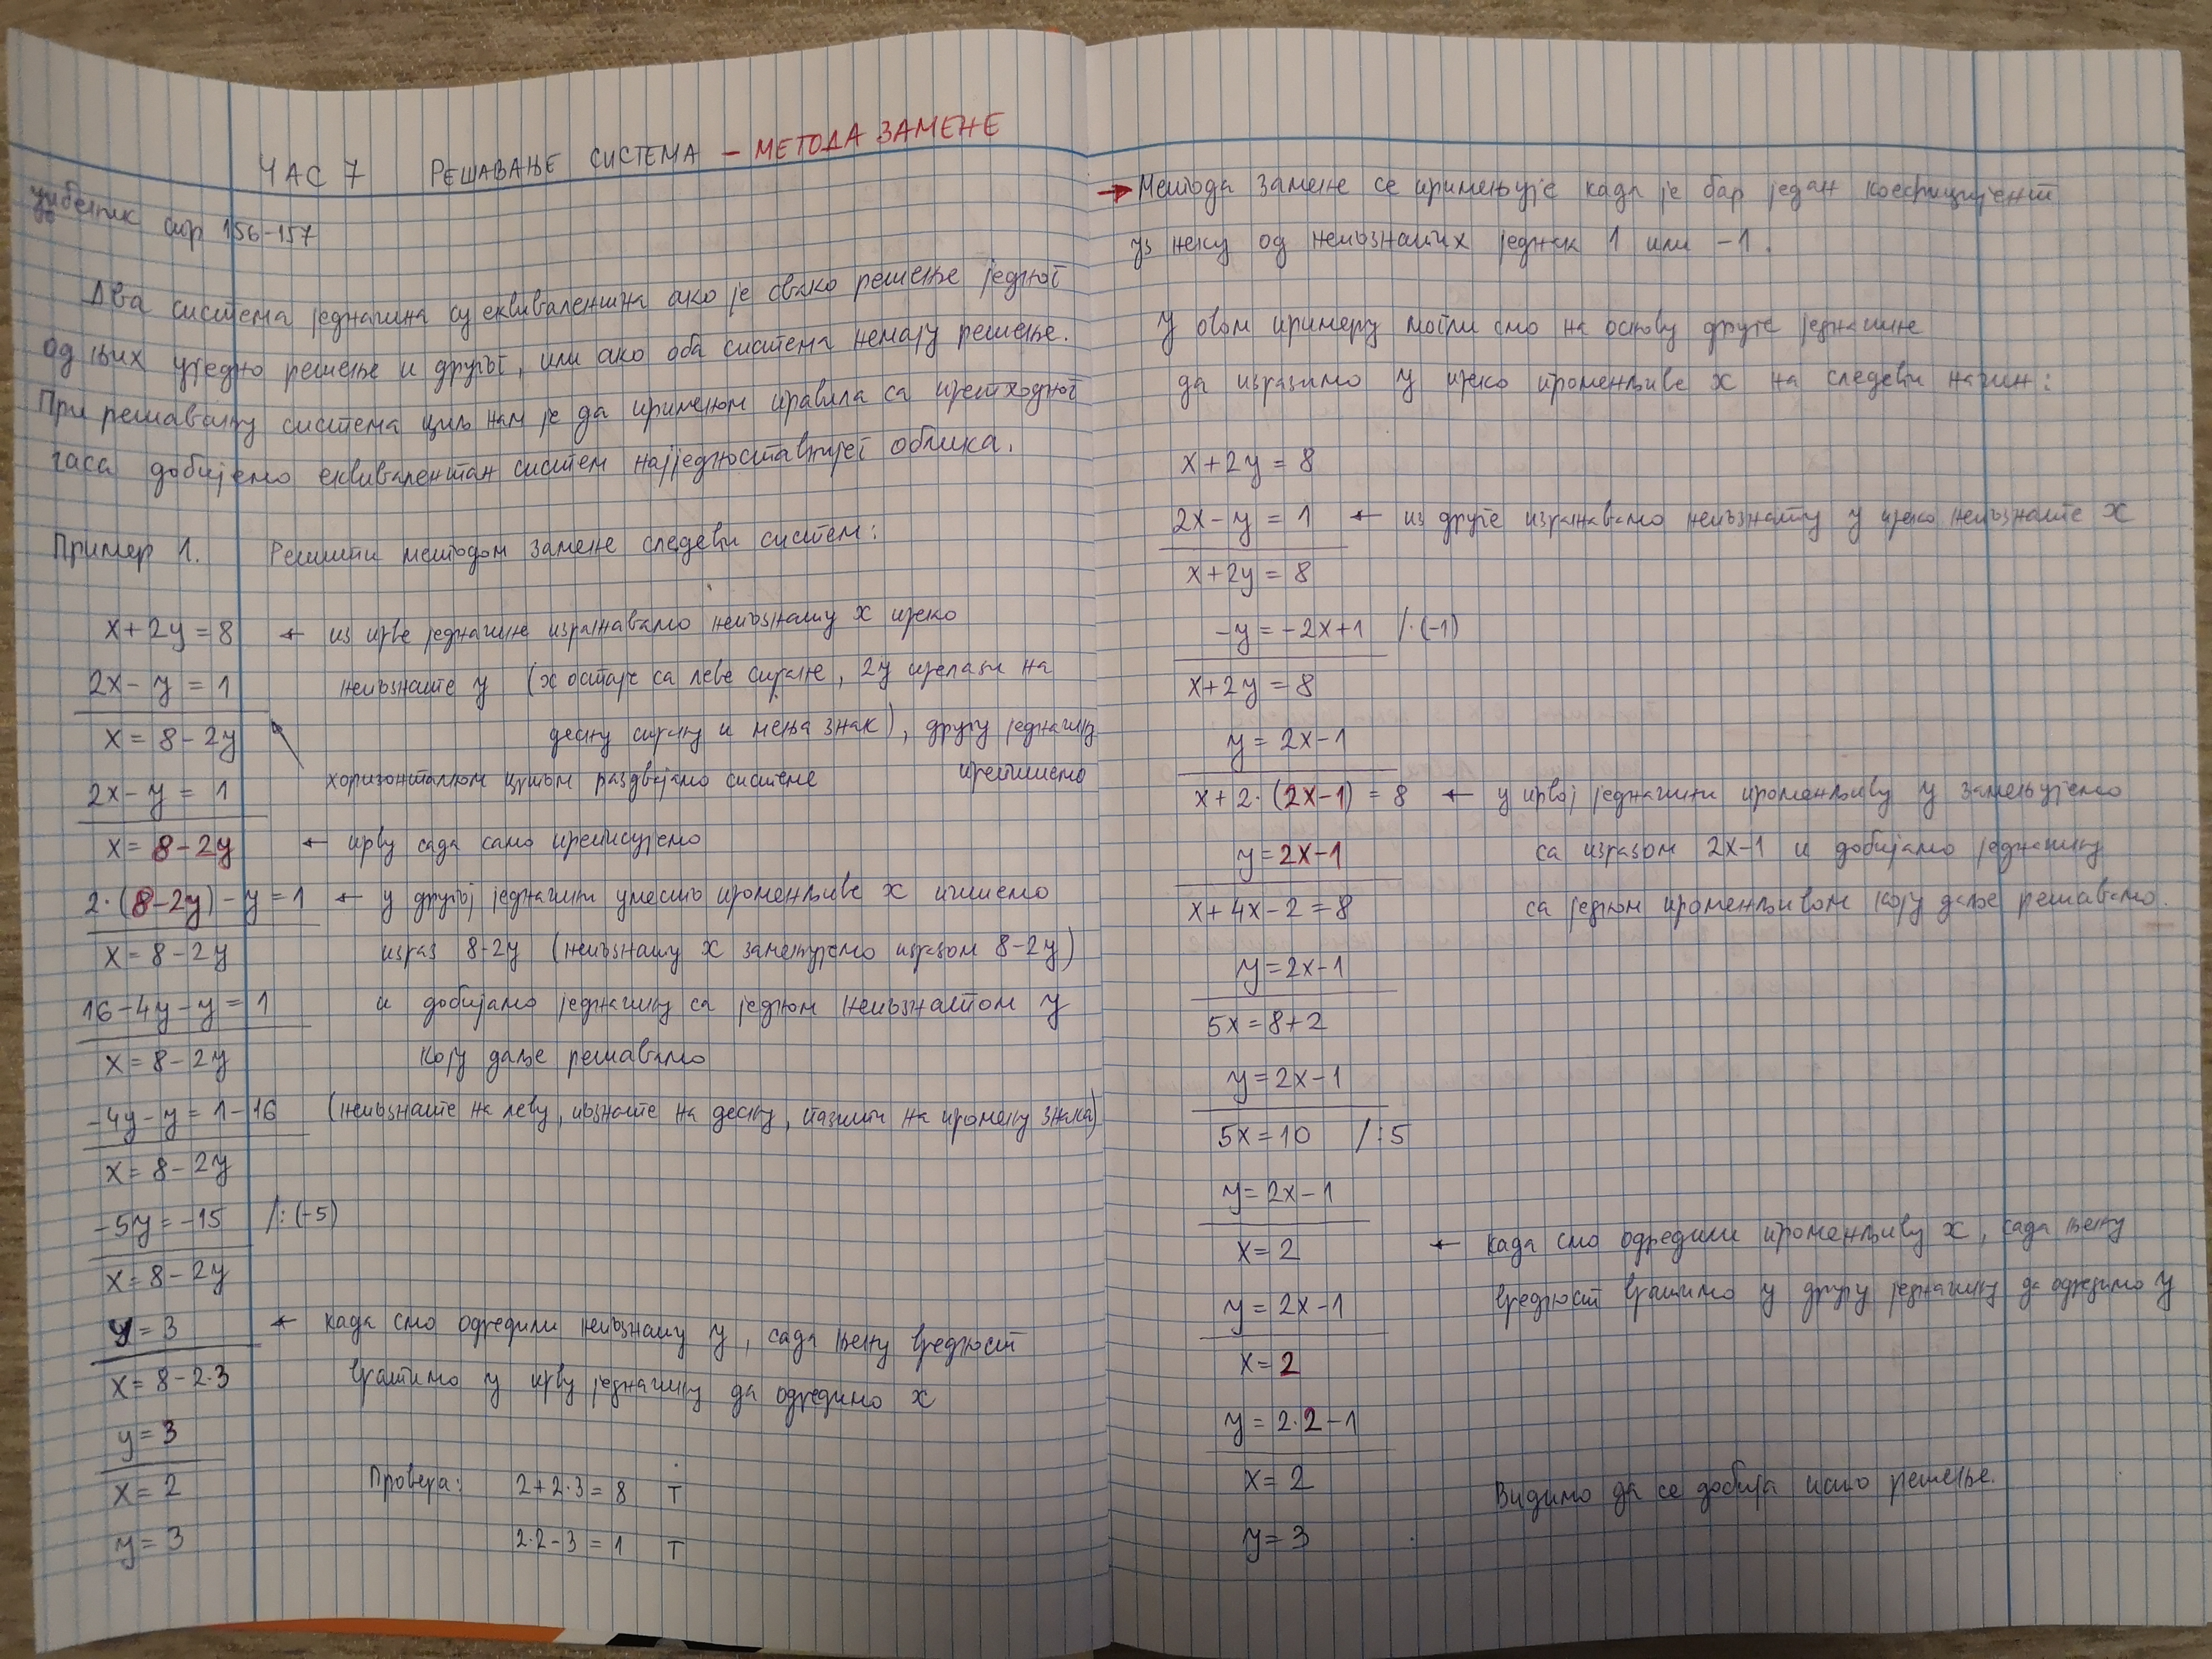 ЧАС 7 РЕШАВАЊЕ СИСТЕМА – МЕТОДА ЗАМЕНЕ
уџбеник стр 156-157
Два система једначина су еквивалентна ако је свако решење једног
од њих уједно решење и другог, или ако оба система немају решење.
При решавању система циљ нам је да применом правила са претходног
часа добијемо еквивалентан систем најједноставнијег облика.
Пример 1. Решити методом замене следећи систем:
x+2y=8 ← из прве једначине изражавамо непознату x преко
2x-y=1 непознате y (x остаје са леве стране, 2y прелази на
x=8-2y десну страну и мења знак), другу једначину
2x-y=1 хоризонталном цртом раздвајамо системе препишемо
x=8-2y ← прву сада само преписујемо
2·(8-2y)-y=1 ← у другој једначини уместо променљиве x пишемо
x=8-2y израз 8-2y (непознату x замењујемо изразом 8-2y)
16-4y-y=1 и добијамо једначину са једном непознатом y
x=8-2y коју даље решавамо
-4y-y=1-16 (непознате на леву, познате на десну, пазити на промену знака)
x=8-2y
-5y=-15 /:(-5)
x=8-2y
y=3 ← када смо одредили непознату y, сада њену вредност
x=8-2·3 вратимо у прву једначину да одредимо x
y=3
x=2 Провера: 2+2·3=8 T
y=3 2·2-3=1 T
→ Метода замене се примењује када је бар један коефицијент
уз неку од непознатих једнак 1 или -1.
У овом примеру могли смо на основу друге једначине
да изразимо y преко променљиве x на следећи начин:
x+2y=8
2x-y=1 ← из друге изражавамо непознату y преко непознате x
x+2y=8
-y=-2x+1 /·(-1)
x+2y=8
y=2x-1
x+2·(2x-1)=8 ← у првој једначини променљиву y замењујемо
y=2x-1 са изразом 2x-1 и добијамо једначину
x+4x-2=8 са једном променљивом коју даље решавамо.
y=2x-1
5x=8+2
y=2x-1
5x=10 /:5
y=2x-1
x=2 ← када смо одредили променљиву x, сада њену
y=2x-1 вредност вратимо у другу једначину да одредимо y
x=2
y=2·2-1
x=2 Видимо да се добија исто решење.
y=3